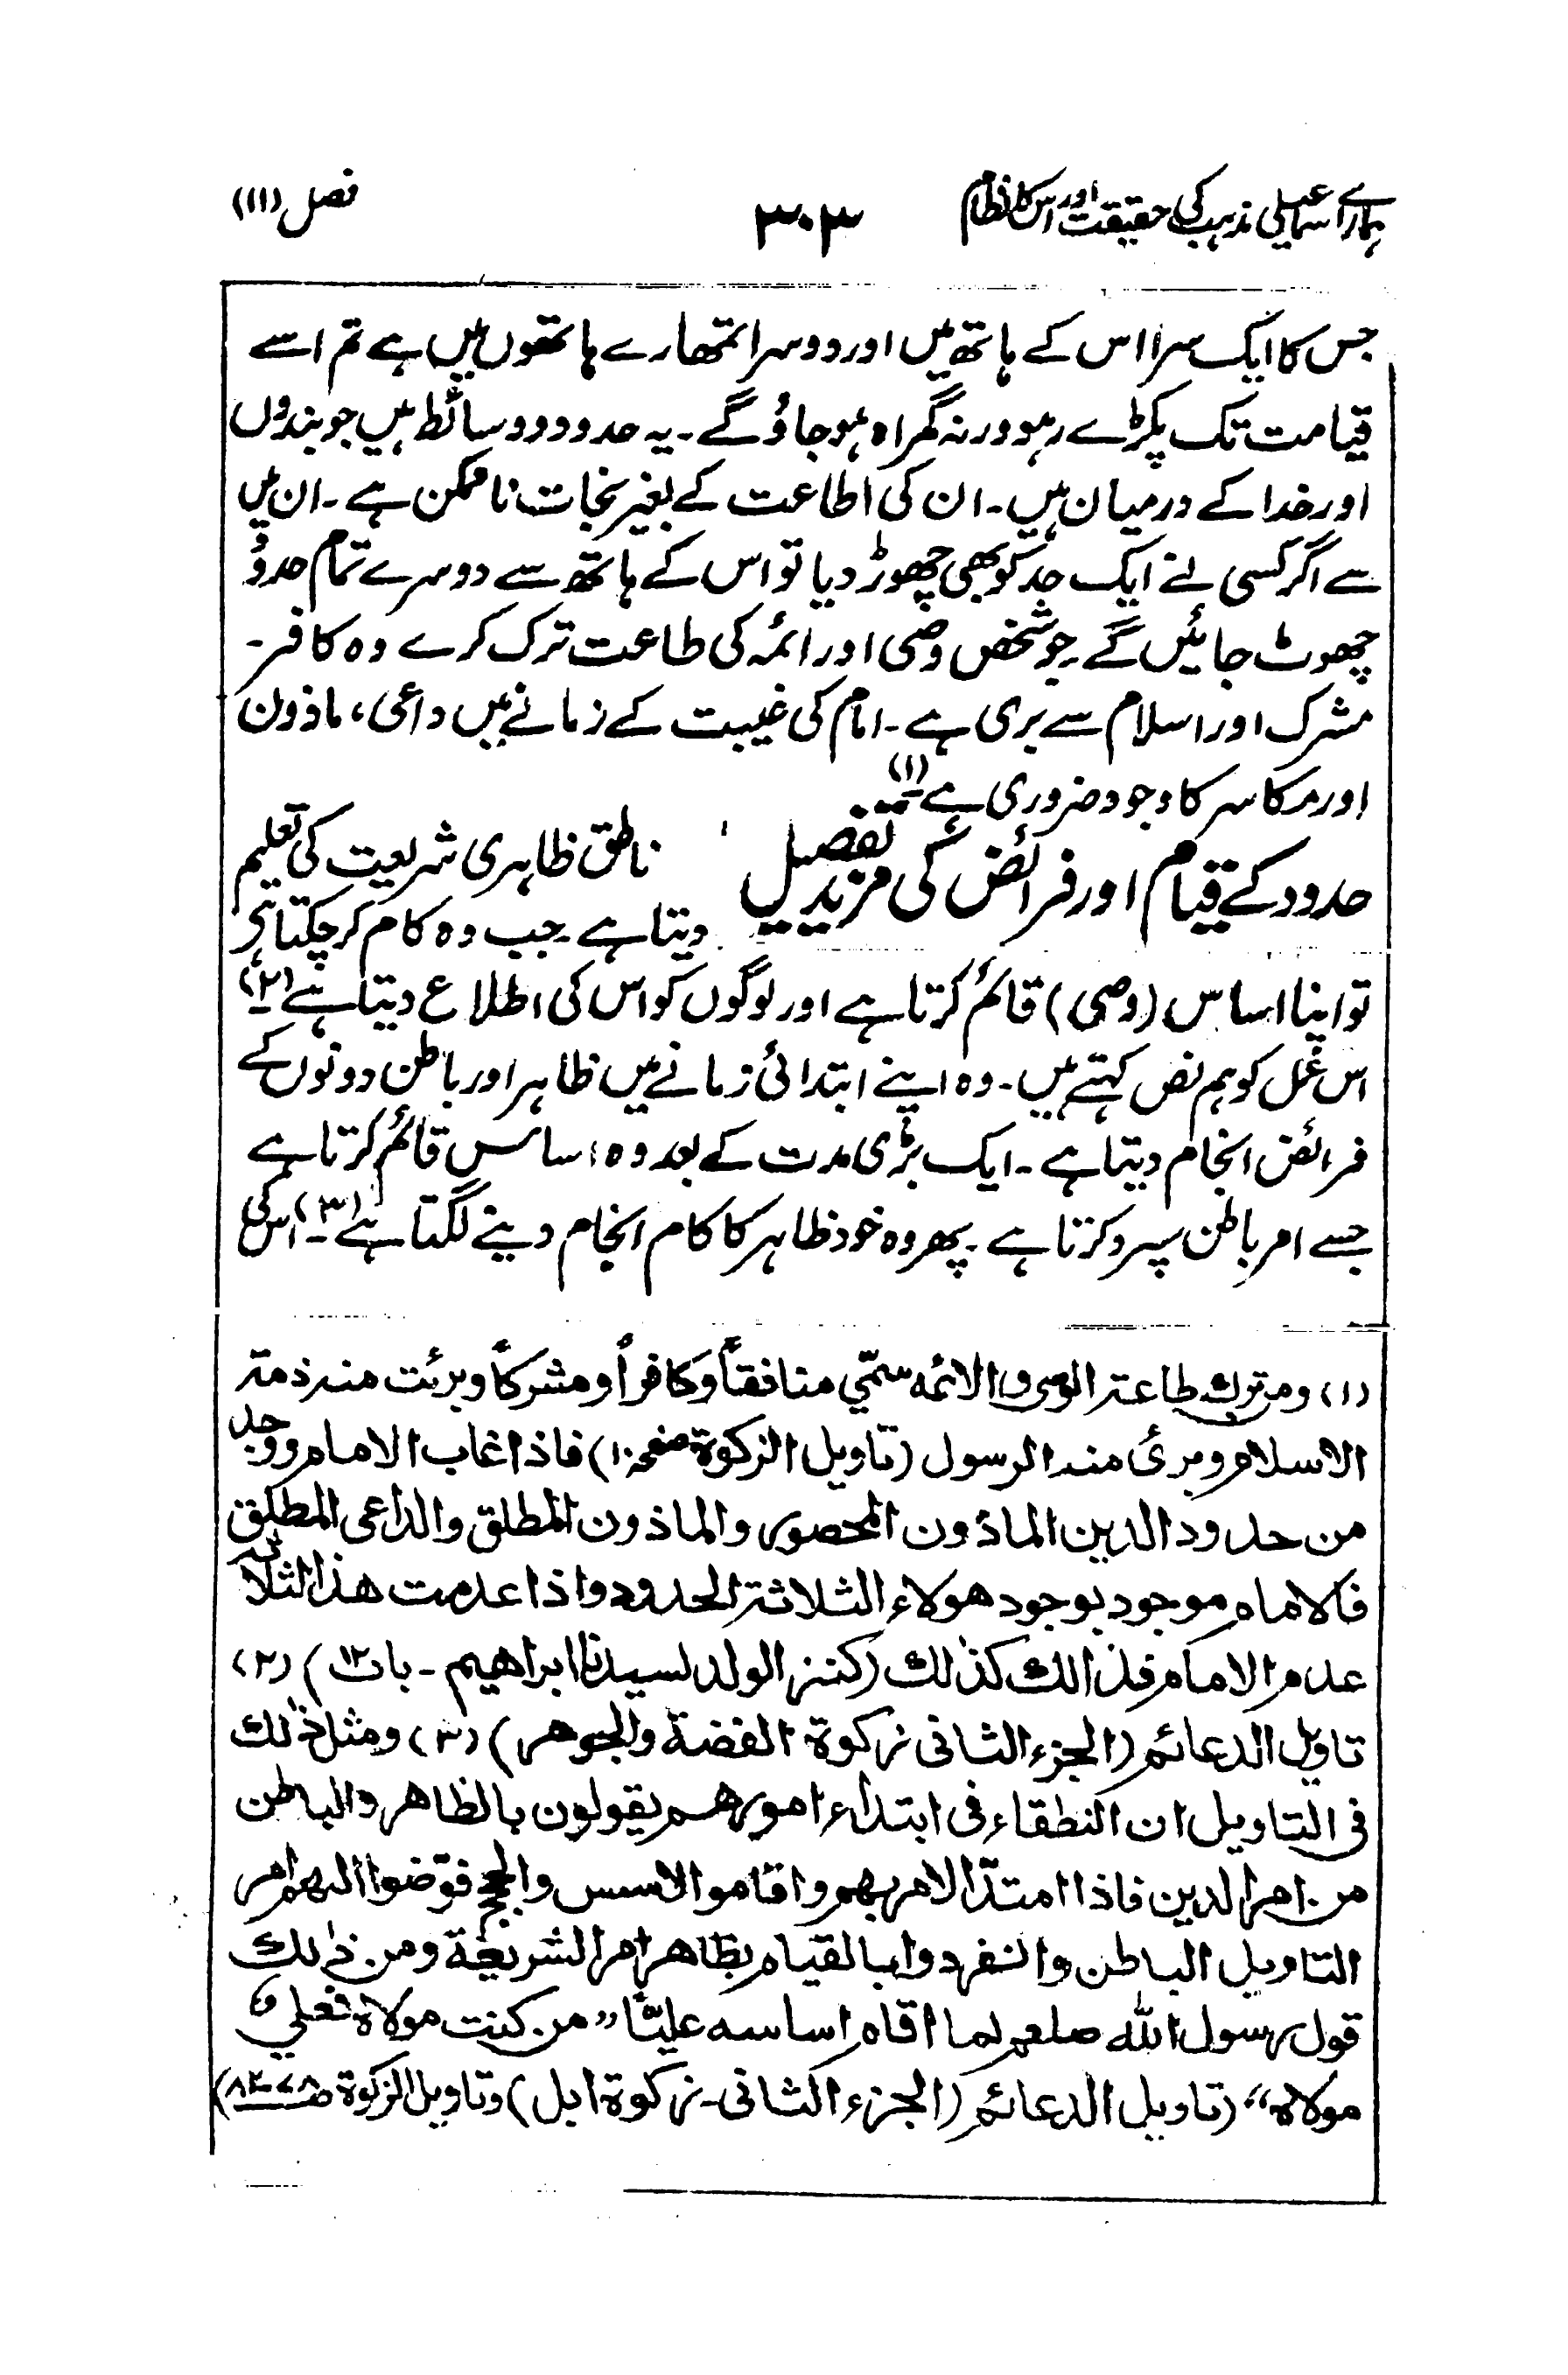 ہمارے اسماعیلی مذہب کی حقیقت اور اس کا نظام ۳۰۳ فصل (۱۱)
جس کا ایک سرا اس کے ہاتھ میں اور دوسرا تمھارے ہاتھوں میں ہے تم اسے
قیامت تک پکڑے رہو ورنہ گمراہ ہو جاؤ گے۔ یہ حدود وہ وسائط ہیں جو بندوں
اور خدا کے درمیان ہیں۔ ان کی اطاعت کے بغیر نجات ناممکن ہے۔ ان میں
سے اگر کسی نے ایک حد کو بھی چھوڑ دیا تو اس کے ہاتھ سے دوسرے تمام حدود
چھوٹ جائیں گے۔ جو شخص وصی اور ائمہ کی طاعت ترک کرے وہ کافر۔
مشرک اور اسلام سے بری ہے۔ امام کی غیبت کے زمانے میں داعی، ماذون
اور مکاسر کا وجود ضروری ہے (۱)
حدود کے قیام اور فرائض کی مزید تفصیل
ناطق ظاہری شریعت کی تعلیم
دیتا ہے۔ جب وہ کام کر چکتا ہے
تو اپنا اساس (وصی) قائم کرتا ہے اور لوگوں کو اس کی اطلاع دیتا ہے (۲)۔
اس عمل کو ہم نص کہتے ہیں۔ وہ اپنے ابتدائی زمانے میں ظاہر اور باطن دونوں کے
فرائض انجام دیتا ہے۔ ایک بڑی مدت کے بعد وہ اساس قائم کرتا ہے
جسے امر باطن سپرد کرتا ہے۔ پھر وہ خود ظاہر کا کام انجام دینے لگتا ہے (۳)۔ اس کی
(۱) ومن ترک طاعتہ الوصی والائمہ سمّی منافقاً وکافراً ومشرکاً وبرئت منہ ذمتہ
الاسلام وبرئ منہ الرسول (تاویل الزکوۃ صفحہ ۱۰) فاذا غاب الامام ووجد
من حدود الدین الماذون المحصور والماذون المطلق والداعی المطلق
فالامام موجود بوجود ھولاء الثلاثۃ الحدود واذا عدمت ھذا الثلاثۃ
عدم الامام فذالک کذلک (کنز الولد لسیدنا ابراھیم۔ باب ۱۲) (۲)
تاویل الدعائم (الجزء الثانی زکوۃ الفضۃ والجوھر) (۳) ومثل ذلک
فی التاویل ان النطقاء فی ابتداء امورھم یقولون بالظاھر والباطن
من امر الدین فاذا امتدّ الامر بھم واقاموا الاسس والحجج فوّضوا الیھم امر
التاویل الباطن وانفردوا بالقیام بظاھر امر الشریعۃ ومن ذلک
قول رسول اللہ صلعم لما اقام اساسہ علیّاً ”من کنت مولاہ فعلیٌ
مولاہ“ (تاویل الدعائم (الجزء الثانی۔ زکوۃ ابل) وتاویل الزکوۃ